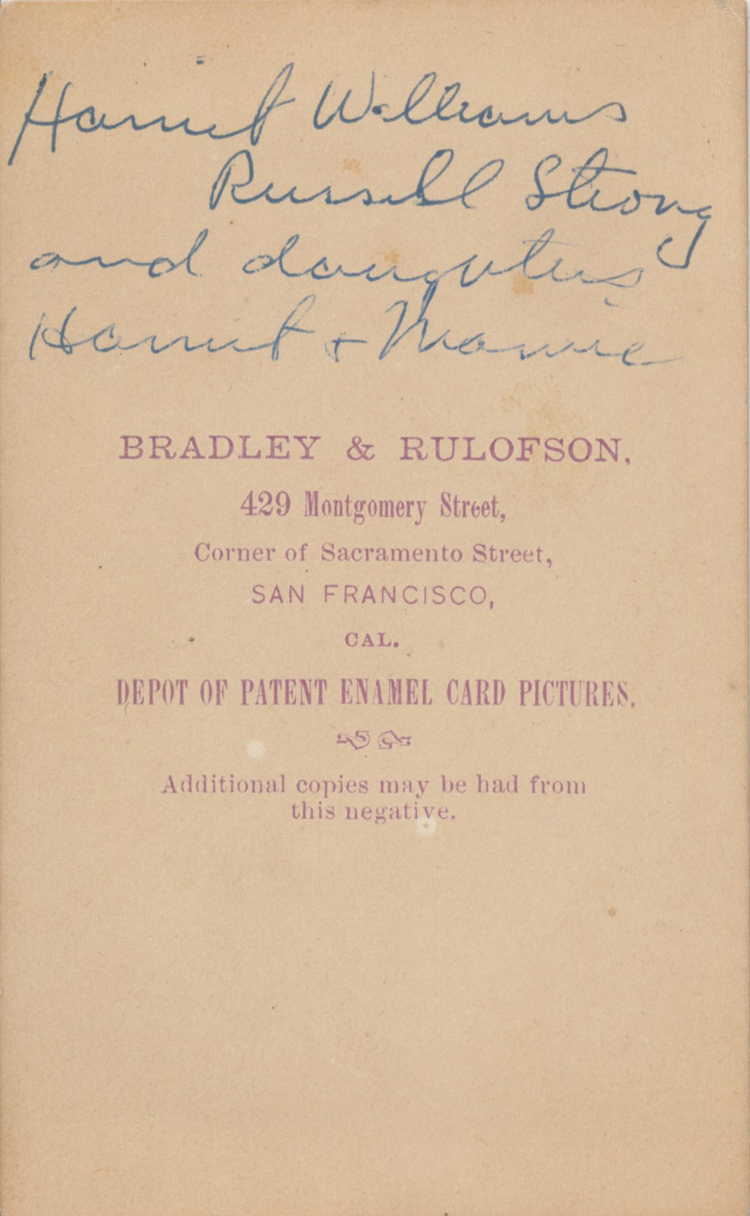 Harriet Williams
Russell Strong
and daughters
Harriet + Mamie
BRADLEY & RULOFSON,
429 Montgomery Street,
Corner of Sacramento Street,
SAN FRANCISCO,
CAL.
DEPOT OF PATENT ENAMEL CARD PICTURES.
Additional copies may be had from
this negative.